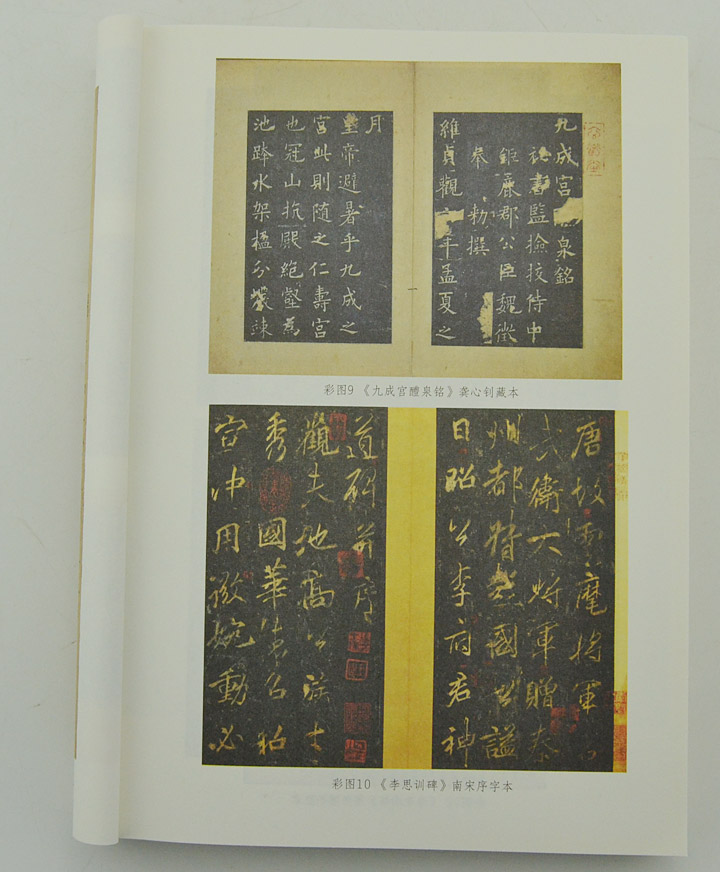 九成宮泉銘
秘書監撿挍侍中
鉅鹿郡公臣魏徵
奉 勑撰
維貞觀六年孟夏之
月
皇帝避暑乎九成之
宮此則隨之仁壽宮
也冠山抗殿絶壑為
池跨水架楹分巖竦
彩图9 《九成宫醴泉铭》龚心钊藏本
唐故雲麾將軍右
武衛大將軍贈秦
州都督彭國公謚
曰昭公李府君神
道碑并序
觀夫地高公族才
秀國華德名昭
宣沖用微婉動必
彩图10 《李思训碑》南宋序字本